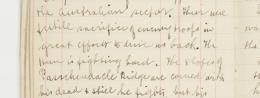 the Australian sector. Their use
futile sacrifice of enemy troops in
great effort to drive us back. The
Hun is fighting hard. The slopes of
Passchendaele Ridge are covered with
his dead & still he fights, but his